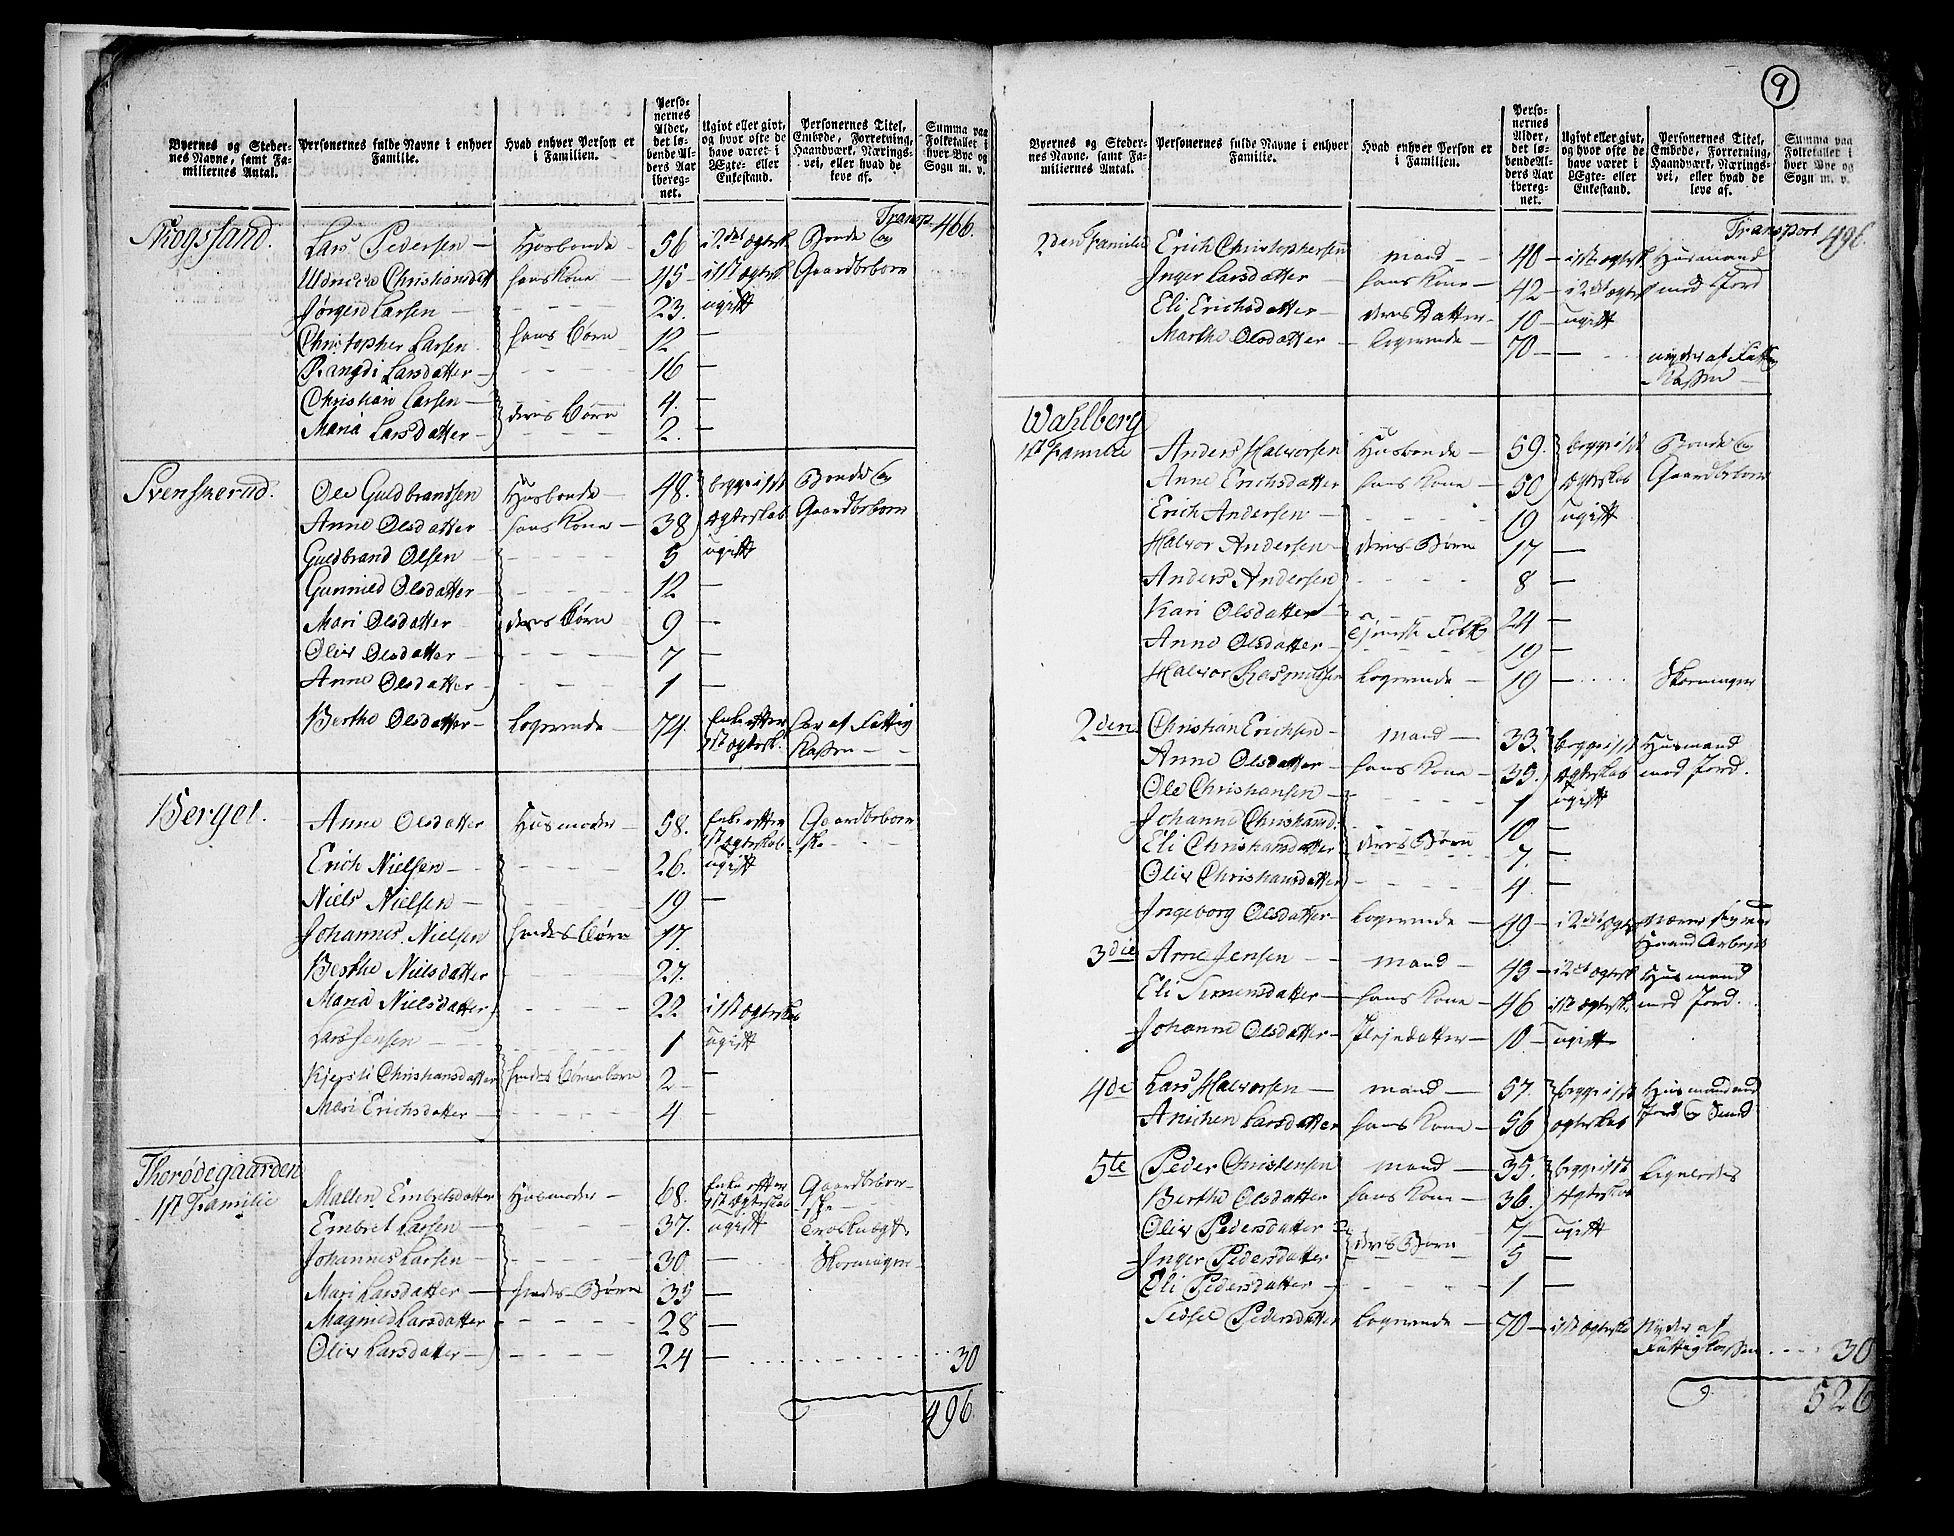 9
Byernes og Stedernes Navne, samt Familiernes Antal. Personernes fulde Navne i enhver Familie. Hvad enhver Person er i Familien. Personernes Alder, det løbende Alders Aar iberegnet. Ugivt eller givt, og hvor ofte de have været i Ægte- eller Enkestand. Personernes Titel, Embede, Forretning, Haandværk, Næringsvei, eller hvad de leve af. Summa paa Folketallet i hver Bye og Sogn m. v.
Transp. 466
Skogsland. Lars Pedersen Husbonde 56 i 2det Ægtesk. Bonde og
Christiansdatt hans Kone 45 i 1st Ægtesk. Gaardbeboer
Jørgen Larsen 23. ugift
Christopher Larsen hans Børn 12 —
Rangdi Larsdatter 16 —
Christian Larsen 4. —
Maria Larsdatter deres Børn 2. —
Svenskerud. Ole Guldbrandsen Husbonde 48. begge i 1st Bonde og
Anne Olsdatter hans Kone 38 Ægteskab Gaardbeboer
Guldbrand Olsen 5 ugift
Gunnild Olsdatter 12 —
Mari Olsdatter deres Børn 9 —
Oliv Olsdatter 7 —
Anne Olsdatter 1 —
Berthe Olsdatter Logerende 74. Enke efter har af Fattig
1st Ægtesk. Kassen
Berget. Anne Olsdatter Husmoder 58. Enke efter Gaardbeboer
1st Ægteskab ske
Erich Nielsen 26. ugift
Niels Nielsen 19 —
Johannes Nielsen hendes Børn 17.
Berthe Nielsdatter 27.
Maria Nielsdatter 22 i 1st Ægteskab
Lars Jensen 1 ugift
Kjersti Christiansdatter hendes Børnebørn 2 —
Mari Erichsdatter 4 —
Thorødegaarden
1st Familie Mallen Embretsdatter Husmoder 68. Enke efter Gaardbeboer
1st Ægteskab ske
Embret Larsen 37. ugift
Johannes Larsen 30 Skomager
Mari Larsdatter hendes Børn 35 —
Magnild Larsdatter 28 —
Oliv Larsdatter 24 — 30
496
Byernes og Stedernes Navne, samt Familiernes Antal. Personernes fulde Navne i enhver Familie. Hvad enhver Person er i Familien. Personernes Alder, det løbende Alders Aar iberegnet. Ugivt eller givt, og hvor ofte de have været i Ægte- eller Enkestand. Personernes Titel, Embede, Forretning, Haandværk, Næringsvei, eller hvad de leve af. Summa paa Folketallet i hver Bye og Sogn m. v.
Transport 496
2den Familie Erich Christophersen mand 40 i 1st Ægtesk Husmand
Inger Larsdatter hans Kone 42 i 2det Ægtesk med Jord
Eli Erichsdatter deres Datter 10 ugift
Marthe Olsdatter Logerende 70 — nyder af Fattig
Kassen
Wahlberg
1st Familie Anders Halvorsen Husbonde 59. begge i 1st Bonde og
Anne Erichsdatter hans Kone 50 Ægteskab Gaardbeboer
Erich Andersen 19 ugift
Halvor Andersen deres Børn 17 —
Anders Andersen 8 —
Kari Olsdatter Tjeneste Folk 24 —
Anne Olsdatter 19 —
Halvor Rasmusen Logerende 19 — Skomager
2den Christian Erichsen mand 33. begge i 1st Husmand
Anne Olsdatter hans Kone 35. Ægteskab med Jord.
Ole Christiansen 1 ugift
Johanne Christiansd. 10 —
Eli Christiansdatter deres Børn 7. —
Oliv Christiansdatter 4. —
Ingeborg Olsdatter Logerende 49 i 2det Ægtesk Nærer sig med
Haand Arbejde
3die Arne Jensen mand 45 i 2det Ægtesk Husmand
Eli Simensdatter hans Kone 46 i 1st Ægtesk. med Jord.
Johanne Olsdatter Plejedatter 10 ugift
4de Lars Halvorsen mand 57. begge i 1st Husmand med
Anichen Larsdatter hans Kone 56 Ægteskab Jord og
5te Peder Christensen mand 35. begge i 1st Ligeledes
Berthe Olsdatter hans Kone 36. Ægteskab
Oliv Pedersdatter 7 ugift
Inger Pedersdatter deres Børn 5 —
Eli Pedersdatter 1 —
Sidsel Pedersdatter Logerende 70 i 1st Ægtesk Nyder af
Fattigkassen 30
526